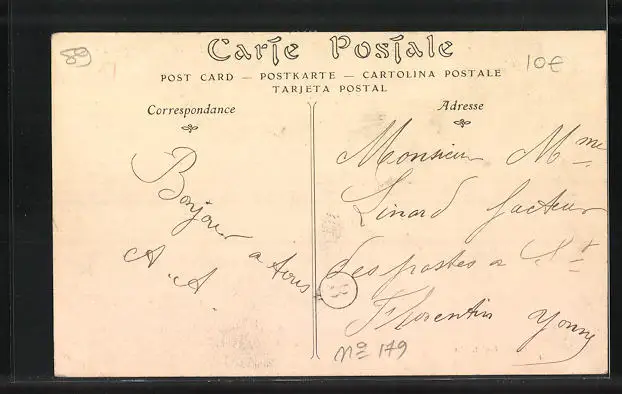 89
Carte Postale
10€
POST CARD — POSTKARTE — CARTOLINA POSTALE
TARJETA POSTAL
Correspondance
Adresse
Bonjour
a tous
A. A.
Monsieur Mme
Linard facteur
des postes a St
Florentin Yonne
B
No 179